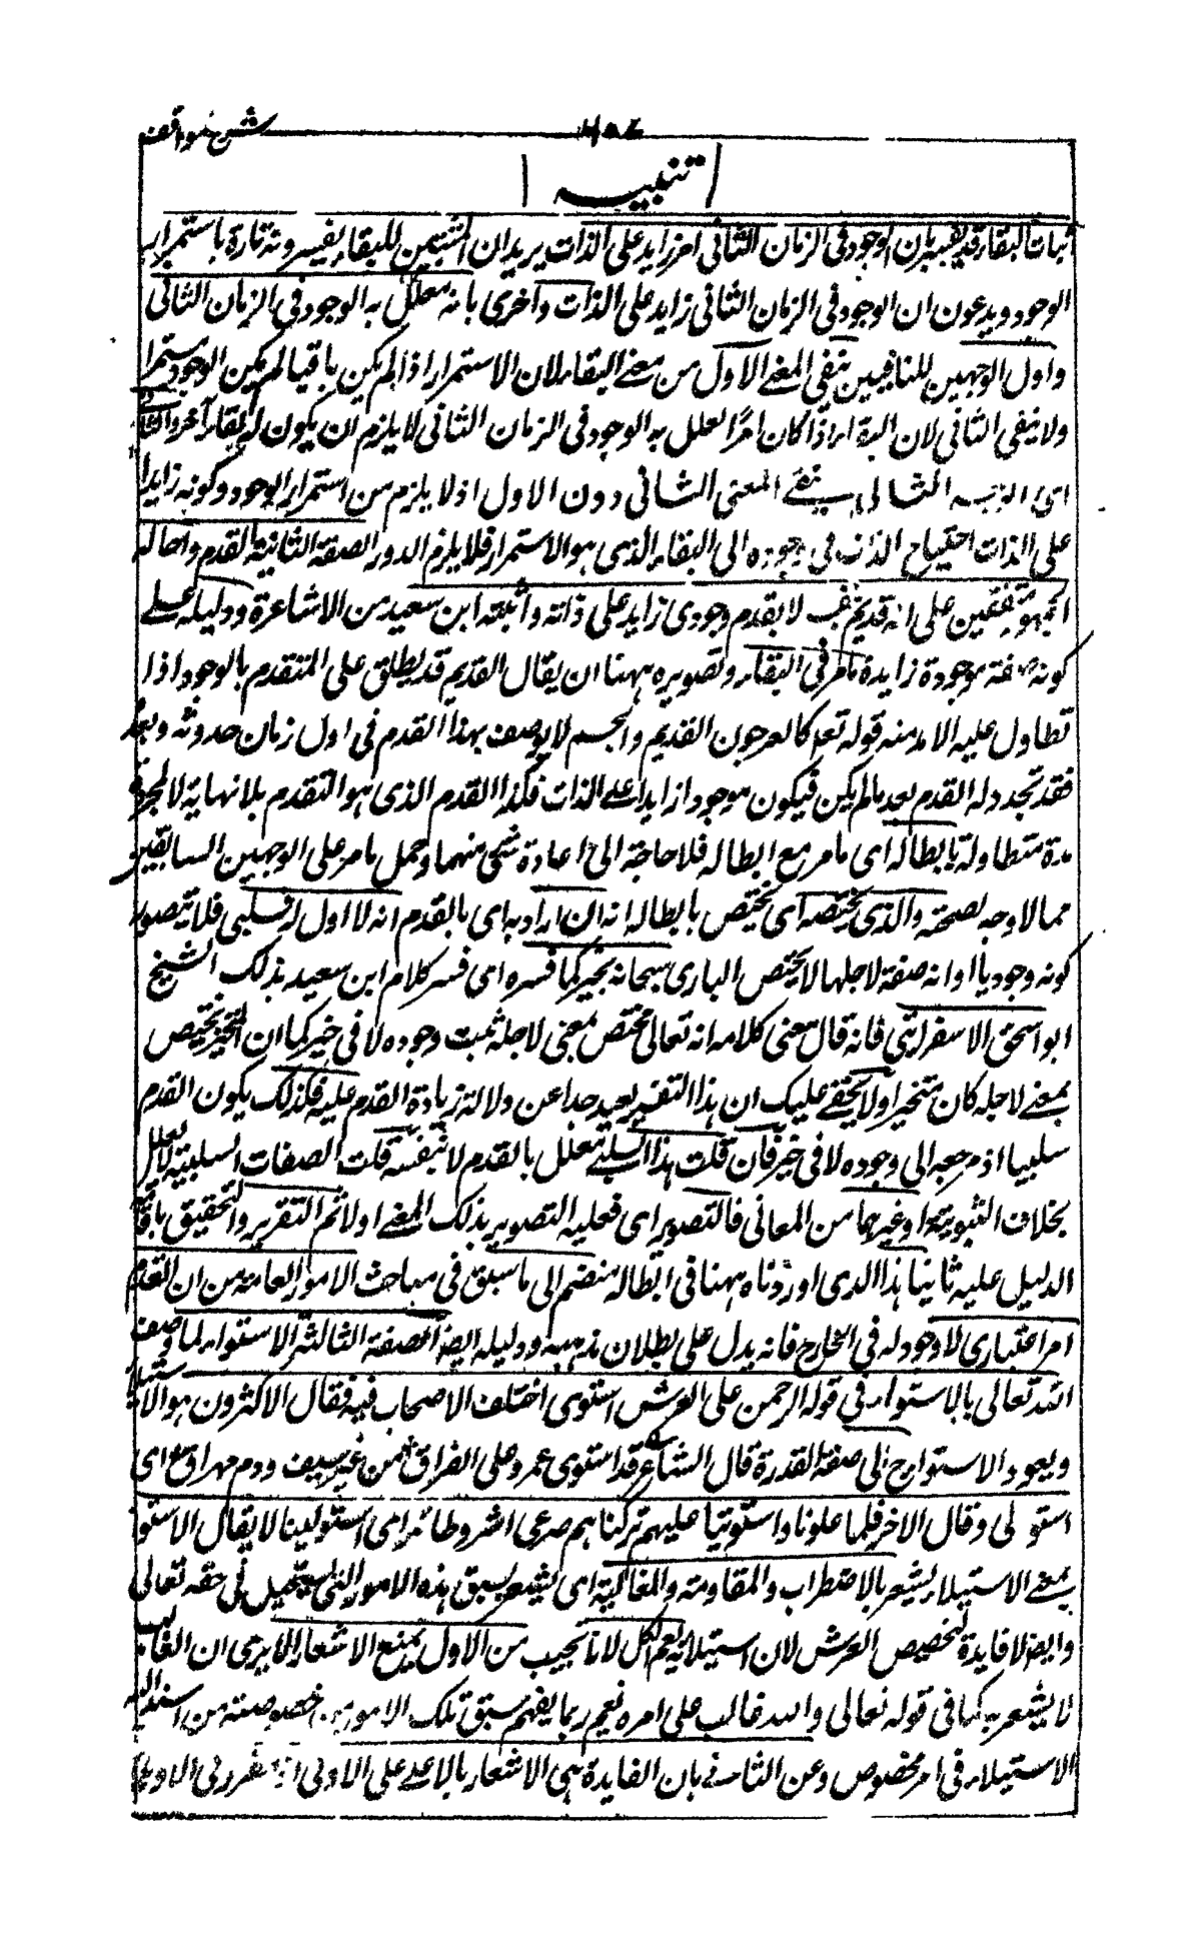 شرح مواقف
تنبيه
اثبات البقاء قد يفسر بان الوجود فى الزمان الثانى امر زايد على الذات يريد ان المثبتين للبقاء يفسرونه تارة باستمرار
الوجود ويدعون ان الوجود فى الزمان الثانى زايد على الذات واخرى بانه معلل به الوجود فى الزمان الثانى
واول الوجهين للنافيين ينفى المعنے الاول من معنے البقاء لان الاستمرار اذا لم يكن باقيا لم يكن الوجود مستمرا
ولا ينفى الثانى لان البقاء اذا كان امرًا لعلل به الوجود فى الزمان الثانى لا يلزم ان يكون له بقاء آخر والثانے
اى الوجه الثانى ينفے المعنى الثانى دون الاول اذ لا يلزم من استمرار الوجود وكونه زايدا
على الذات احتياج الذات فى وجوده الى البقاء الذى هو الاستمرار فلا يلزم الدور الصفة الثانية القدم واحاله
الجمهور متفقين على انه قديم بنفسه لا بقدم وجودى زايد على ذاته واثبته ابن سعيد من الاشاعرة ودليله علے
كونه صفة موجودة زايدة مامر فى البقاء وتصويره ههنا ان يقال القديم قد يطلق على المتقدم بالوجود اذا
تطاول عليه الامد منه قوله تعم كالعرجون القديم والجسم لا يوصف بهذا القدم فى اول زمان حدوثه وبعد
فقد تجدد له القدم بعد مالم يكن فيكون موجودا زايدا علے الذات فكذا القدم الذى هو التقدم بلا نهاية لا لمجرد
مدة متطاولة بابطاله اى مامر مع ابطاله فلا حاجة الى اعادة شى منهما وحمل مامر على الوجهين السابقين
مما لا وجه لصحته والذى يختصه اى يختص بابطاله انه ان اراد به اى بالقدم انه لا اول له فسلبى فلا يتصور
كونه وجوديا او انه صفة لاجلها لا يختص البارى سبحانه بحيز كما فسره اى فسر كلام ابن سعيد بذلك الشيخ
ابو اسحق الاسفراينى فانه قال معنى كلامه انه تعالى مختص بمعنى لاجله ثبت وجوده لا فى حيز كما ان المتحيز يختص
بمعنے لاجله كان متحيزا ولا يخفے عليك ان هذا التفسير بعيد جدا عن دلالة زيادة القدم عليه فلذلك يكون القدم
سلبيا اذ مرجعه الى وجوده لا فى حيز فان قلت هذا السلبے معلل بالقدم لا بنفسه قلت الصفات السلبية لا تعلل
بخلاف الثبوتية او غيرهما من المعانى فالتصوير اى فعليه التصوير بذلك المعنے اولا ثم التقرير والتحقيق باقامة
الدليل عليه ثانيا هذا الذى اوردناه ههنا فى ابطاله منضم الى ما سبق فى مباحث الامور العامة من ان القدم
امر اعتبارى لا وجود له فى الخارج فانه يدل على بطلان مذهبه ودليله ايضا الصفة الثالثة الاستواء لما وصف
الله تعالى بالاستواء فى قوله الرحمن على العرش استوى اختلف الاصحاب فيه فقال الاكثرون هو الاستيلاء
ويعود الاستواء ح الى صفة القدرة قال الشاعر قد استوى عمرو على العراق من غير سيف ودم مهراق اى
استولى وقال الاخر فلما علونا واستوتيا عليهم تركناهم صرعى لنسر وطائر اى استولينا لا يقال الاستواء
بمعنے الاستيلاء يشعر بالاضطراب والمقاومة والمغالبة اى يشعر بسبق هذه الامور التى تستحيل فى حقه تعالى
وايضا لا فايدة لتخصيص العرش لان استيلائه يعم الكل لانا نجيب عن الاول بمنع الاشعار الا يرى ان الغالب
لا يشعر به كما فى قوله تعالى والله غالب على امره نعم ربما يفهم سبق تلك الامور من خصوصية من اسند اليه
الاستيلاء فى امر مخصوص وعن الثانے بان الفايدة هى الاشعار بالاعلے على الادنى